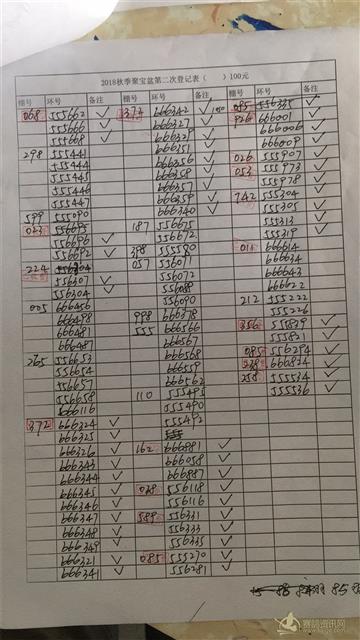 2018秋季聚宝盆第二次登记表（ ）100元
棚号 环号 备注 棚号 环号 备注 棚号 环号 备注
068 555662 ✓ 666342 ✓ 095 556335 ✓
555666 ✓ 666327 ✓ 926 666001 ✓
555668 ✓ 666329 ✓ 666006 ✓
298 555441 666351 ✓ 666009 ✓
555444 666356 ✓ 026 555907 ✓
555445 666358 ✓ 053 555973 ✓
555446 666357 ✓ 555978 ✓
555447 666359 ✓ 742 555304 ✓
599 555090 666340 ✓ 555305 ✓
023 556695 187 556675 555313 ✓
556696 ✓ 556672 555319 ✓
556692 ✓ 398 555590 011 666614
224 057 556071 666634
556307 ✓ 556072 666643
556304 ✓ 556089 666622
005 666456 556090 212 555222
666498 998 666678 555226
666481 555 666566 356 555839 ✓
666487 666567 555821 ✓
265 556653 666568 085 556294 ✓
556654 666559 238 666834 ✓
556657 666562 258 555534 ✓
556658 110 555495 555536 ✓
666116 555490
372 666324 ✓ 555492
666325 ✓
666326 ✓ 162 666981 ✓
666343 ✓ 666058 ✓
666344 ✓ 666987 ✓
666345 ✓ 038 556118 ✓
666346 ✓ 556116 ✓
666347 ✓ 589 556331 ✓
666348 ✓ 556333 ✓
666349 ✓ 556335 ✓
666321 ✓ 085 555270 ✓
666341 ✓ 556281 ✓
赛鸽资讯网